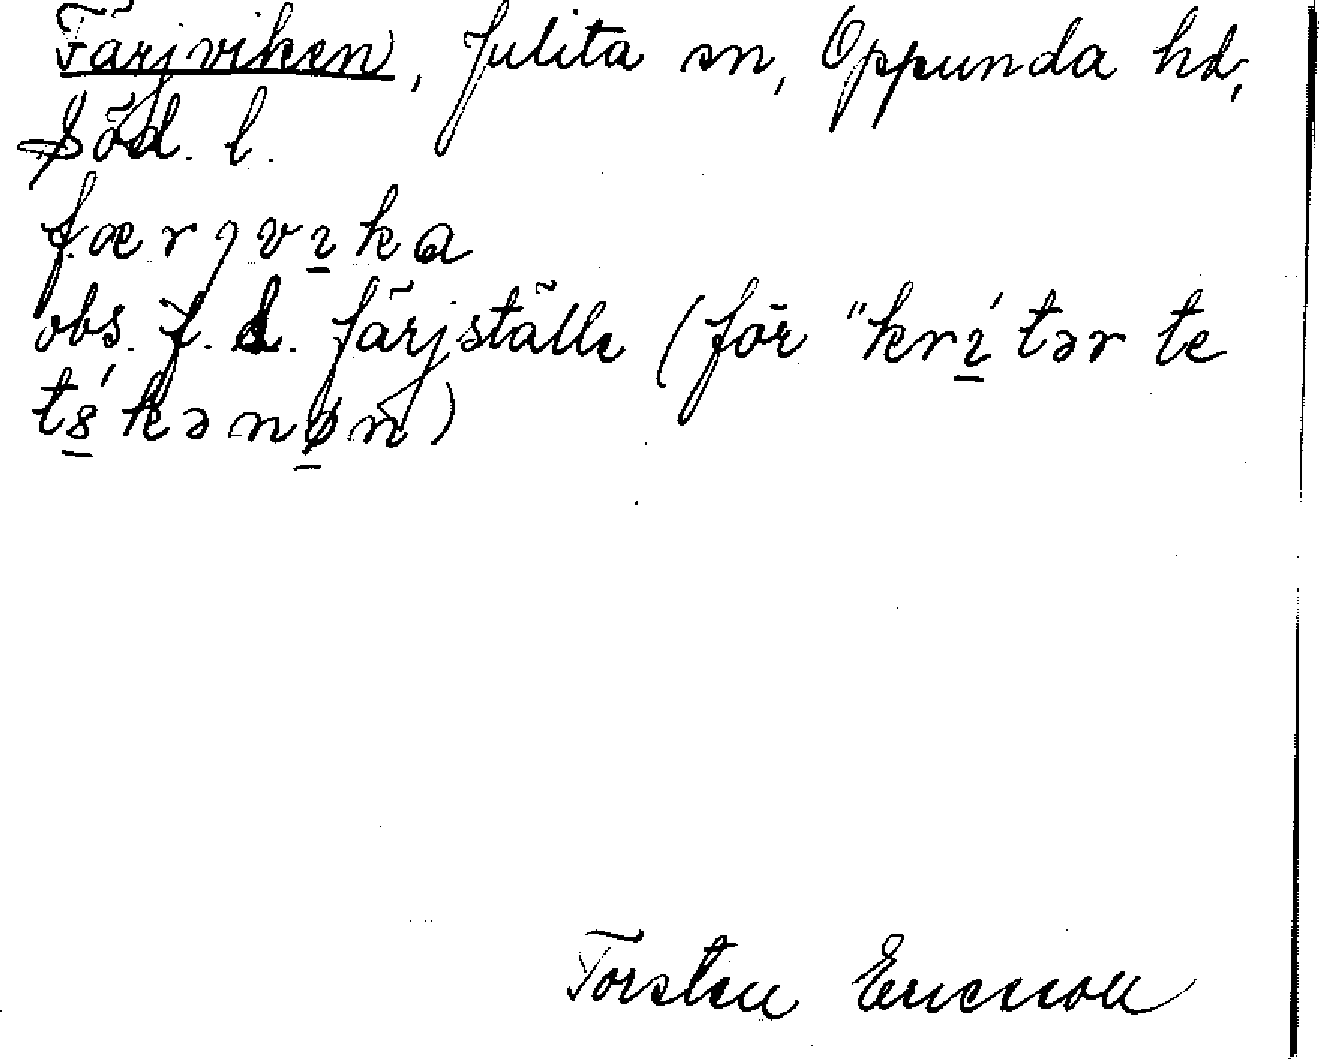 Färjviken, Julita sn, Oppunda hd,
Söd. l.
færjvi̲ka
obs. f. d. färjställe (för "kri̲´tər te
ts̲´kənø̲n)
Torsten Ericson